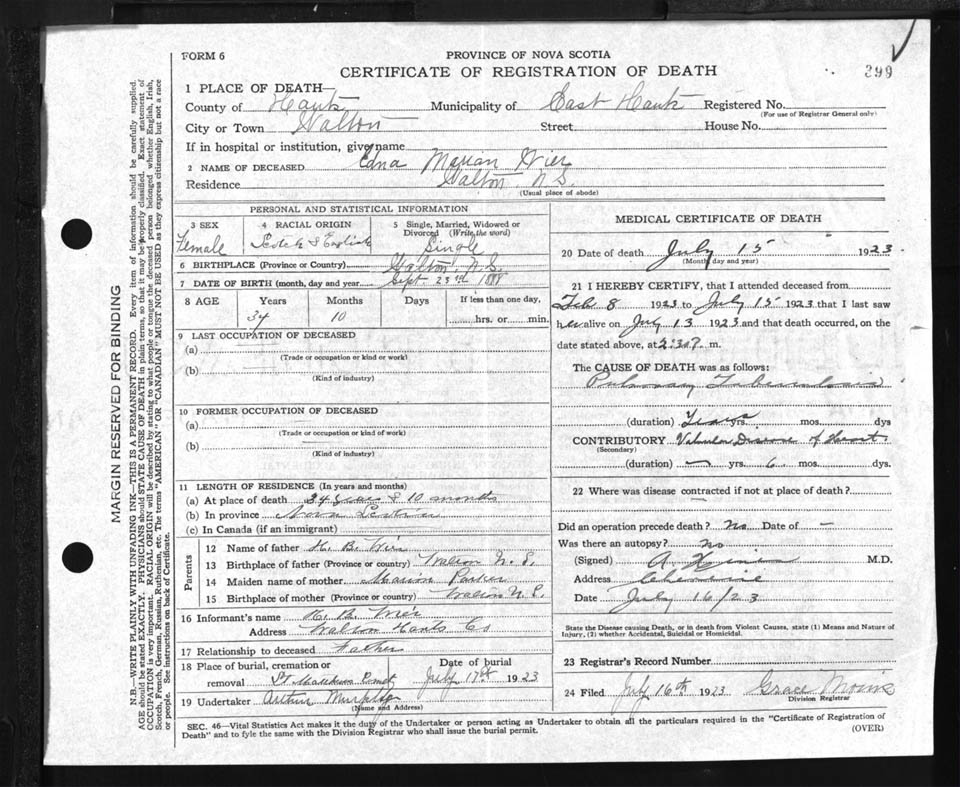 FORM 6
PROVINCE OF NOVA SCOTIA
CERTIFICATE OF REGISTRATION OF DEATH
399
1 PLACE OF DEATH
County of Hants Municipality of East Hants Registered No.
(For use of Registrar General only)
City or Town Walton Street House No.
If in hospital or institution, give name
2 NAME OF DECEASED Edna Marian Wier
Residence Walton N.S.
(Usual place of abode)
PERSONAL AND STATISTICAL INFORMATION
3 SEX 4 RACIAL ORIGIN 5 Single, Married, Widowed or Divorced (Write the word)
Female Scotch & English Single
6 BIRTHPLACE (Province or Country) Walton, N.S.
7 DATE OF BIRTH (month, day and year) Sept. 23rd 1888
8 AGE Years Months Days If less than one day,
34 10 hrs. or min.
9 LAST OCCUPATION OF DECEASED
(a)
(Trade or occupation or kind or work)
(b)
(Kind of industry)
10 FORMER OCCUPATION OF DECEASED
(a)
(Trade or occupation or kind of work)
(b)
(Kind of industry)
11 LENGTH OF RESIDENCE (In years and months)
(a) At place of death 34 years & 10 months
(b) In province Nova Scotia
(c) In Canada (if an immigrant)
Parents
12 Name of father H. B. Wier
13 Birthplace of father (Province or country) Walton N.S.
14 Maiden name of mother Marion Parker
15 Birthplace of mother (Province or country) Walton N.S.
16 Informant's name H. B. Wier
Address Walton Hants Co
17 Relationship to deceased Father
18 Place of burial, cremation or removal St Matthews Cemet Date of burial July 17th 1923
19 Undertaker Arthur Murphy
(Name and Address)
MEDICAL CERTIFICATE OF DEATH
20 Date of death July 15 1923
(Month, day and year)
21 I HEREBY CERTIFY, that I attended deceased from
Feb 8 1923 to July 15 1923 that I last saw
her alive on July 13 1923 and that death occurred, on the
date stated above, at 2:30 P. m.
The CAUSE OF DEATH was as follows:
Pulmonary Tuberculosis
(duration) Years yrs. mos. dys
CONTRIBUTORY Valvular Disease of Heart
(Secondary)
(duration) — yrs. 6 mos. dys.
22 Where was disease contracted if not at place of death?
Did an operation precede death? no Date of —
Was there an autopsy? no
(Signed) A. M.D.
Address Cheverie
Date July 16/23
State the Disease causing Death, or in death from Violent Causes, state (1) Means and Nature of
Injury, (2) whether Accidental, Suicidal or Homicidal.
23 Registrar's Record Number
24 Filed July 16th 1923 Grace Morris
Division Registrar
SEC. 46—Vital Statistics Act makes it the duty of the Undertaker or person acting as Undertaker to obtain all the particulars required in the "Certificate of Registration of
Death" and to fyle the same with the Division Registrar who shall issue the burial permit.
(OVER)
MARGIN RESERVED FOR BINDING
N.B.—WRITE PLAINLY WITH UNFADING INK—THIS IS A PERMANENT RECORD. Every item of information should be carefully supplied.
AGE should be stated EXACTLY. PHYSICIANS should STATE CAUSE OF DEATH in plain terms, so that it may be properly classified. Exact statement of
OCCUPATION is very important. RACIAL ORIGIN will be described by stating to what people or tongue the deceased person belonged whether English, Irish,
Scotch, French, German, Russian, Ruthenian, etc. The terms "AMERICAN" OR "CANADIAN" MUST NOT BE USED as they express citizenship but not a race
or people. See instructions on back of Certificate.